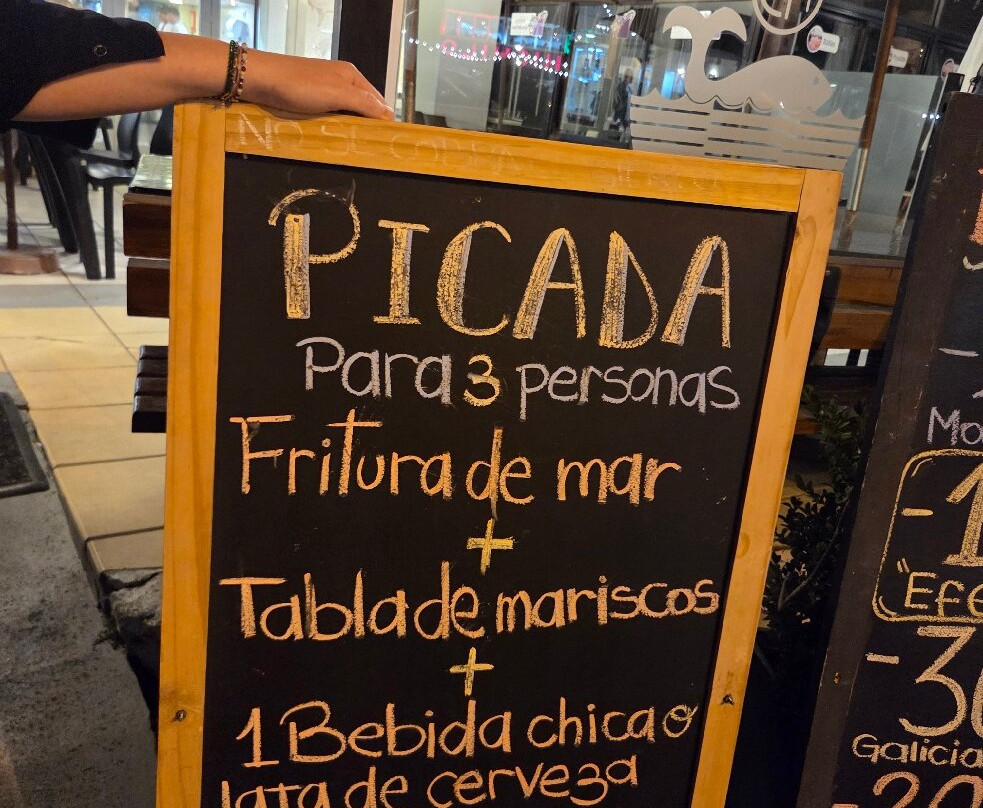 NO SE COBRA
PICADA
Para 3 personas
Fritura de mar
+
Tabla de mariscos
+
1 Bebida chica o
lata de cerveza
Mo
-1
"Efe
-30
Galicia
-20